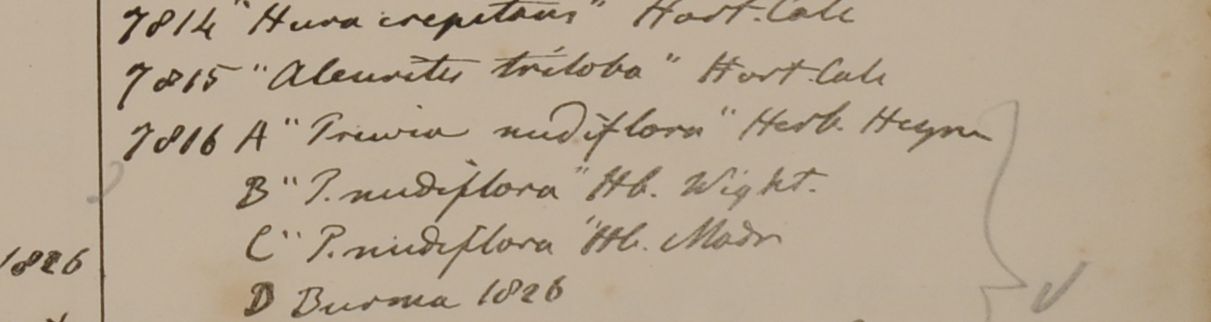 7814 "Hura crepitans" Hort. Calc
7815 "Aleurites triloba" Hort. Calc
7816 A "Trewia nudiflora" Herb. Heyne
B "T. nudiflora" Hb. Wight.
C "T. nudiflora" Hb. Madr
1826
D Burma 1826